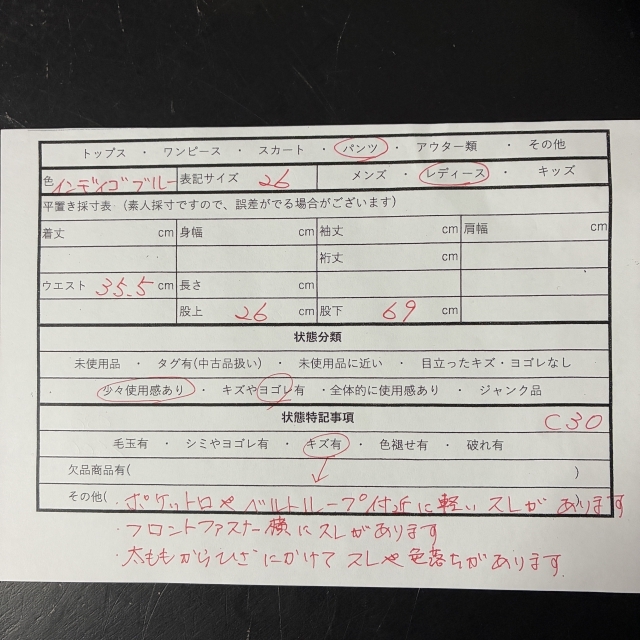 トップス ・ ワンピース ・ スカート ・ パンツ ・ アウター類 ・ その他
色 インディゴブルー 表記サイズ 26 メンズ ・ レディース ・ キッズ
平置き採寸表 (素人採寸ですので、誤差がでる場合がございます)
着丈 cm 身幅 cm 袖丈 cm 肩幅 cm
裄丈 cm
ウエスト 35.5 cm 長さ cm
股上 26 cm 股下 69 cm
状態分類
未使用品 ・ タグ有(中古品扱い) ・ 未使用品に近い ・ 目立ったキズ・ヨゴレなし
少々使用感あり ・ キズやヨゴレ有 ・全体的に使用感あり ・ ジャンク品
状態特記事項 C30
毛玉有 ・ シミやヨゴレ有 ・ キズ有 ・ 色褪せ有 ・ 破れ有
欠品商品有( )
その他( ・ポケット口やベルトループ付近に軽いスレがあります )
・フロントファスナー横にスレがあります
・太ももからひざにかけてスレや色落ちがあります.